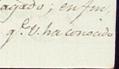 agado; en fin,
q.e V. ha conocido